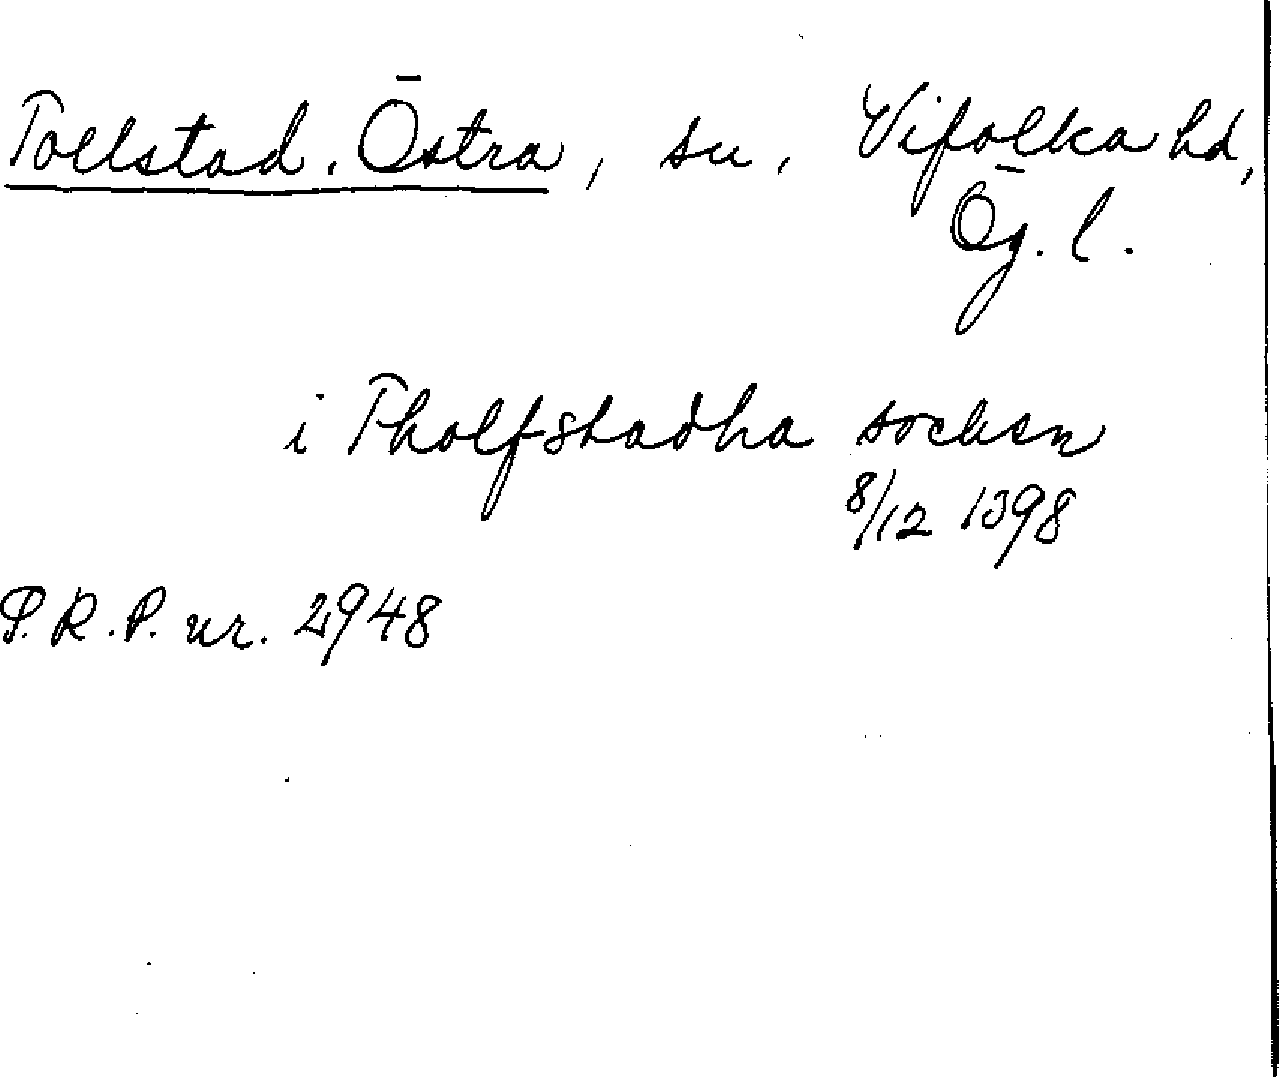 Tollstad, Östra, sn, Vifolka hd,
Ög. l.
i Tholfstadha sochen
8/12 1398
P.R.P. nr. 2948